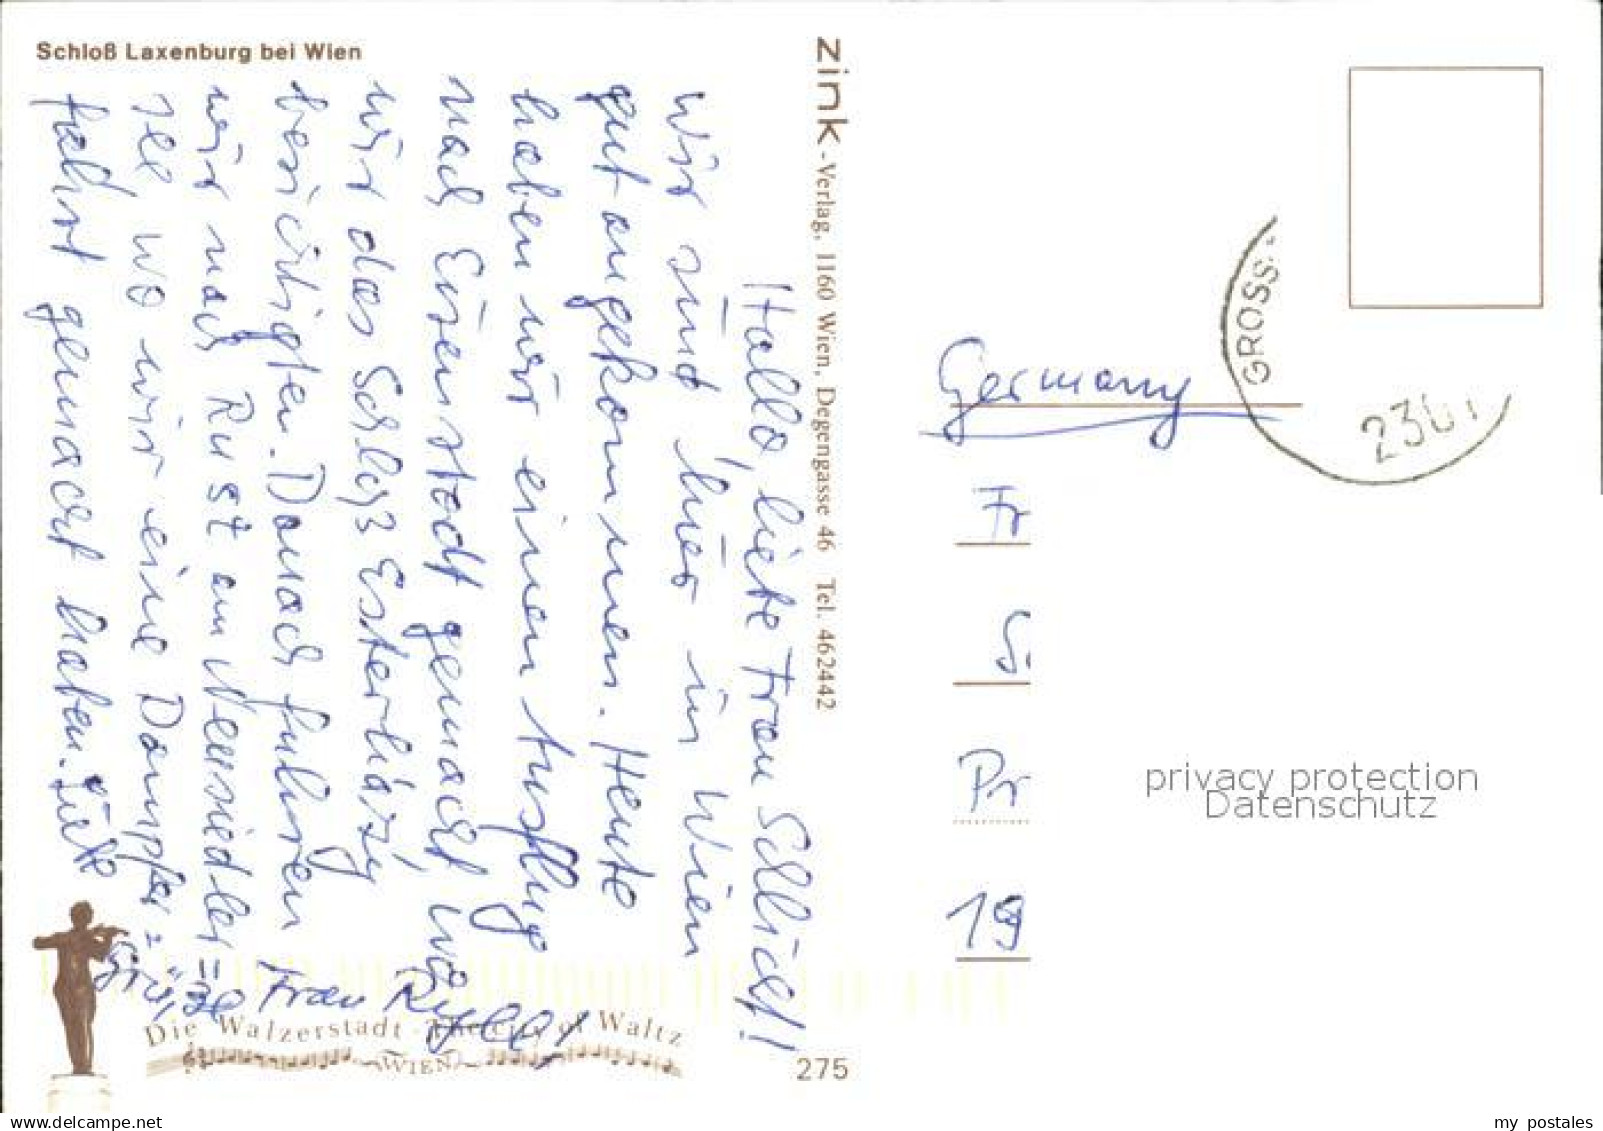 Schloß Laxenburg bei Wien
Hallo, liebe Frau Schlicht!
Wir sind hier in Wien
gut angekommen. Heute
haben wir einen Ausflug
nach Eisenstadt gemacht, wo
wir das Schloß Esterházy
besichtigten. Danach fuhren
wir nach Rust am Neusiedler=
see wo wir eine Dampfer=
fahrt gemacht haben. Liebe
Grüße Frau
zink-Verlag, 1160 Wien, Degengasse 46 Tel. 462442
Die Walzerstadt - The City of Waltz
WIEN
275
GROSS
Germany
Fr
S
Pr
19
privacy protection
Datenschutz
delcampe.net
my_postales